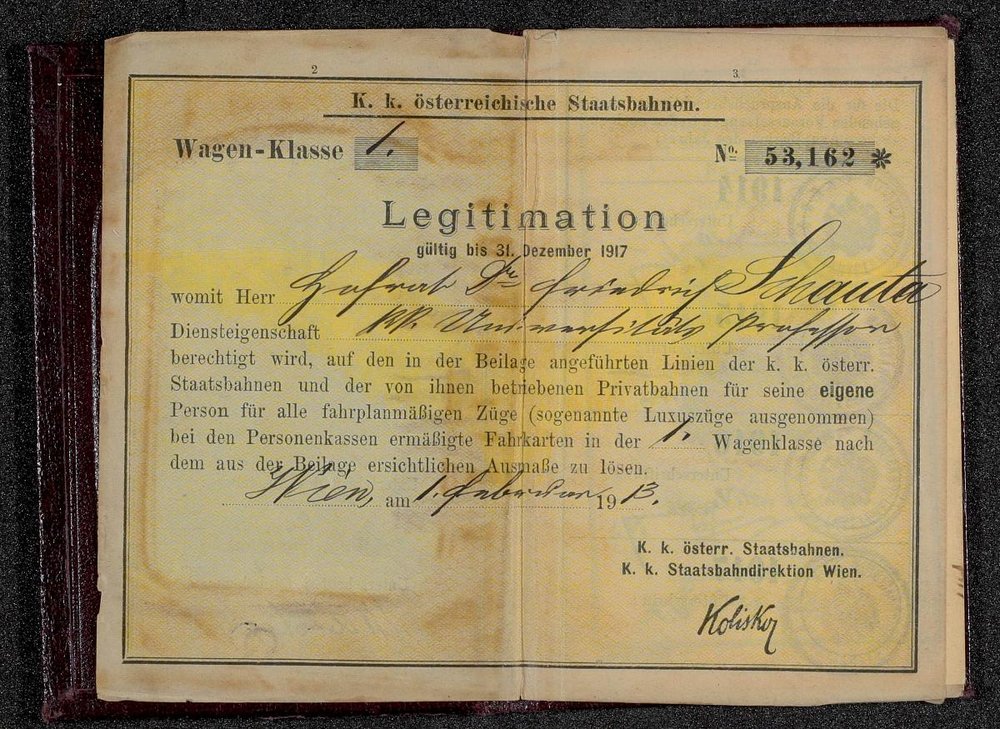 2
3.
K. k. österreichische Staatsbahnen.
Wagen-Klasse 1.
No. 53,162 *
Legitimation
gültig bis 31. Dezember 1917
womit Herr Hofrat Dr. Friedrich Schauta
Diensteigenschaft k.k. Universitäts Professor
berechtigt wird, auf den in der Beilage angeführten Linien der k. k. österr.
Staatsbahnen und der von ihnen betriebenen Privatbahnen für seine eigene
Person für alle fahrplanmäßigen Züge (sogenannte Luxuszüge ausgenommen)
bei den Personenkassen ermäßigte Fahrkarten in der 1. Wagenklasse nach
dem aus der Beilage ersichtlichen Ausmaße zu lösen.
Wien, am 1. Februar 1913.
K. k. österr. Staatsbahnen.
K. k. Staatsbahndirektion Wien.
Kolisko